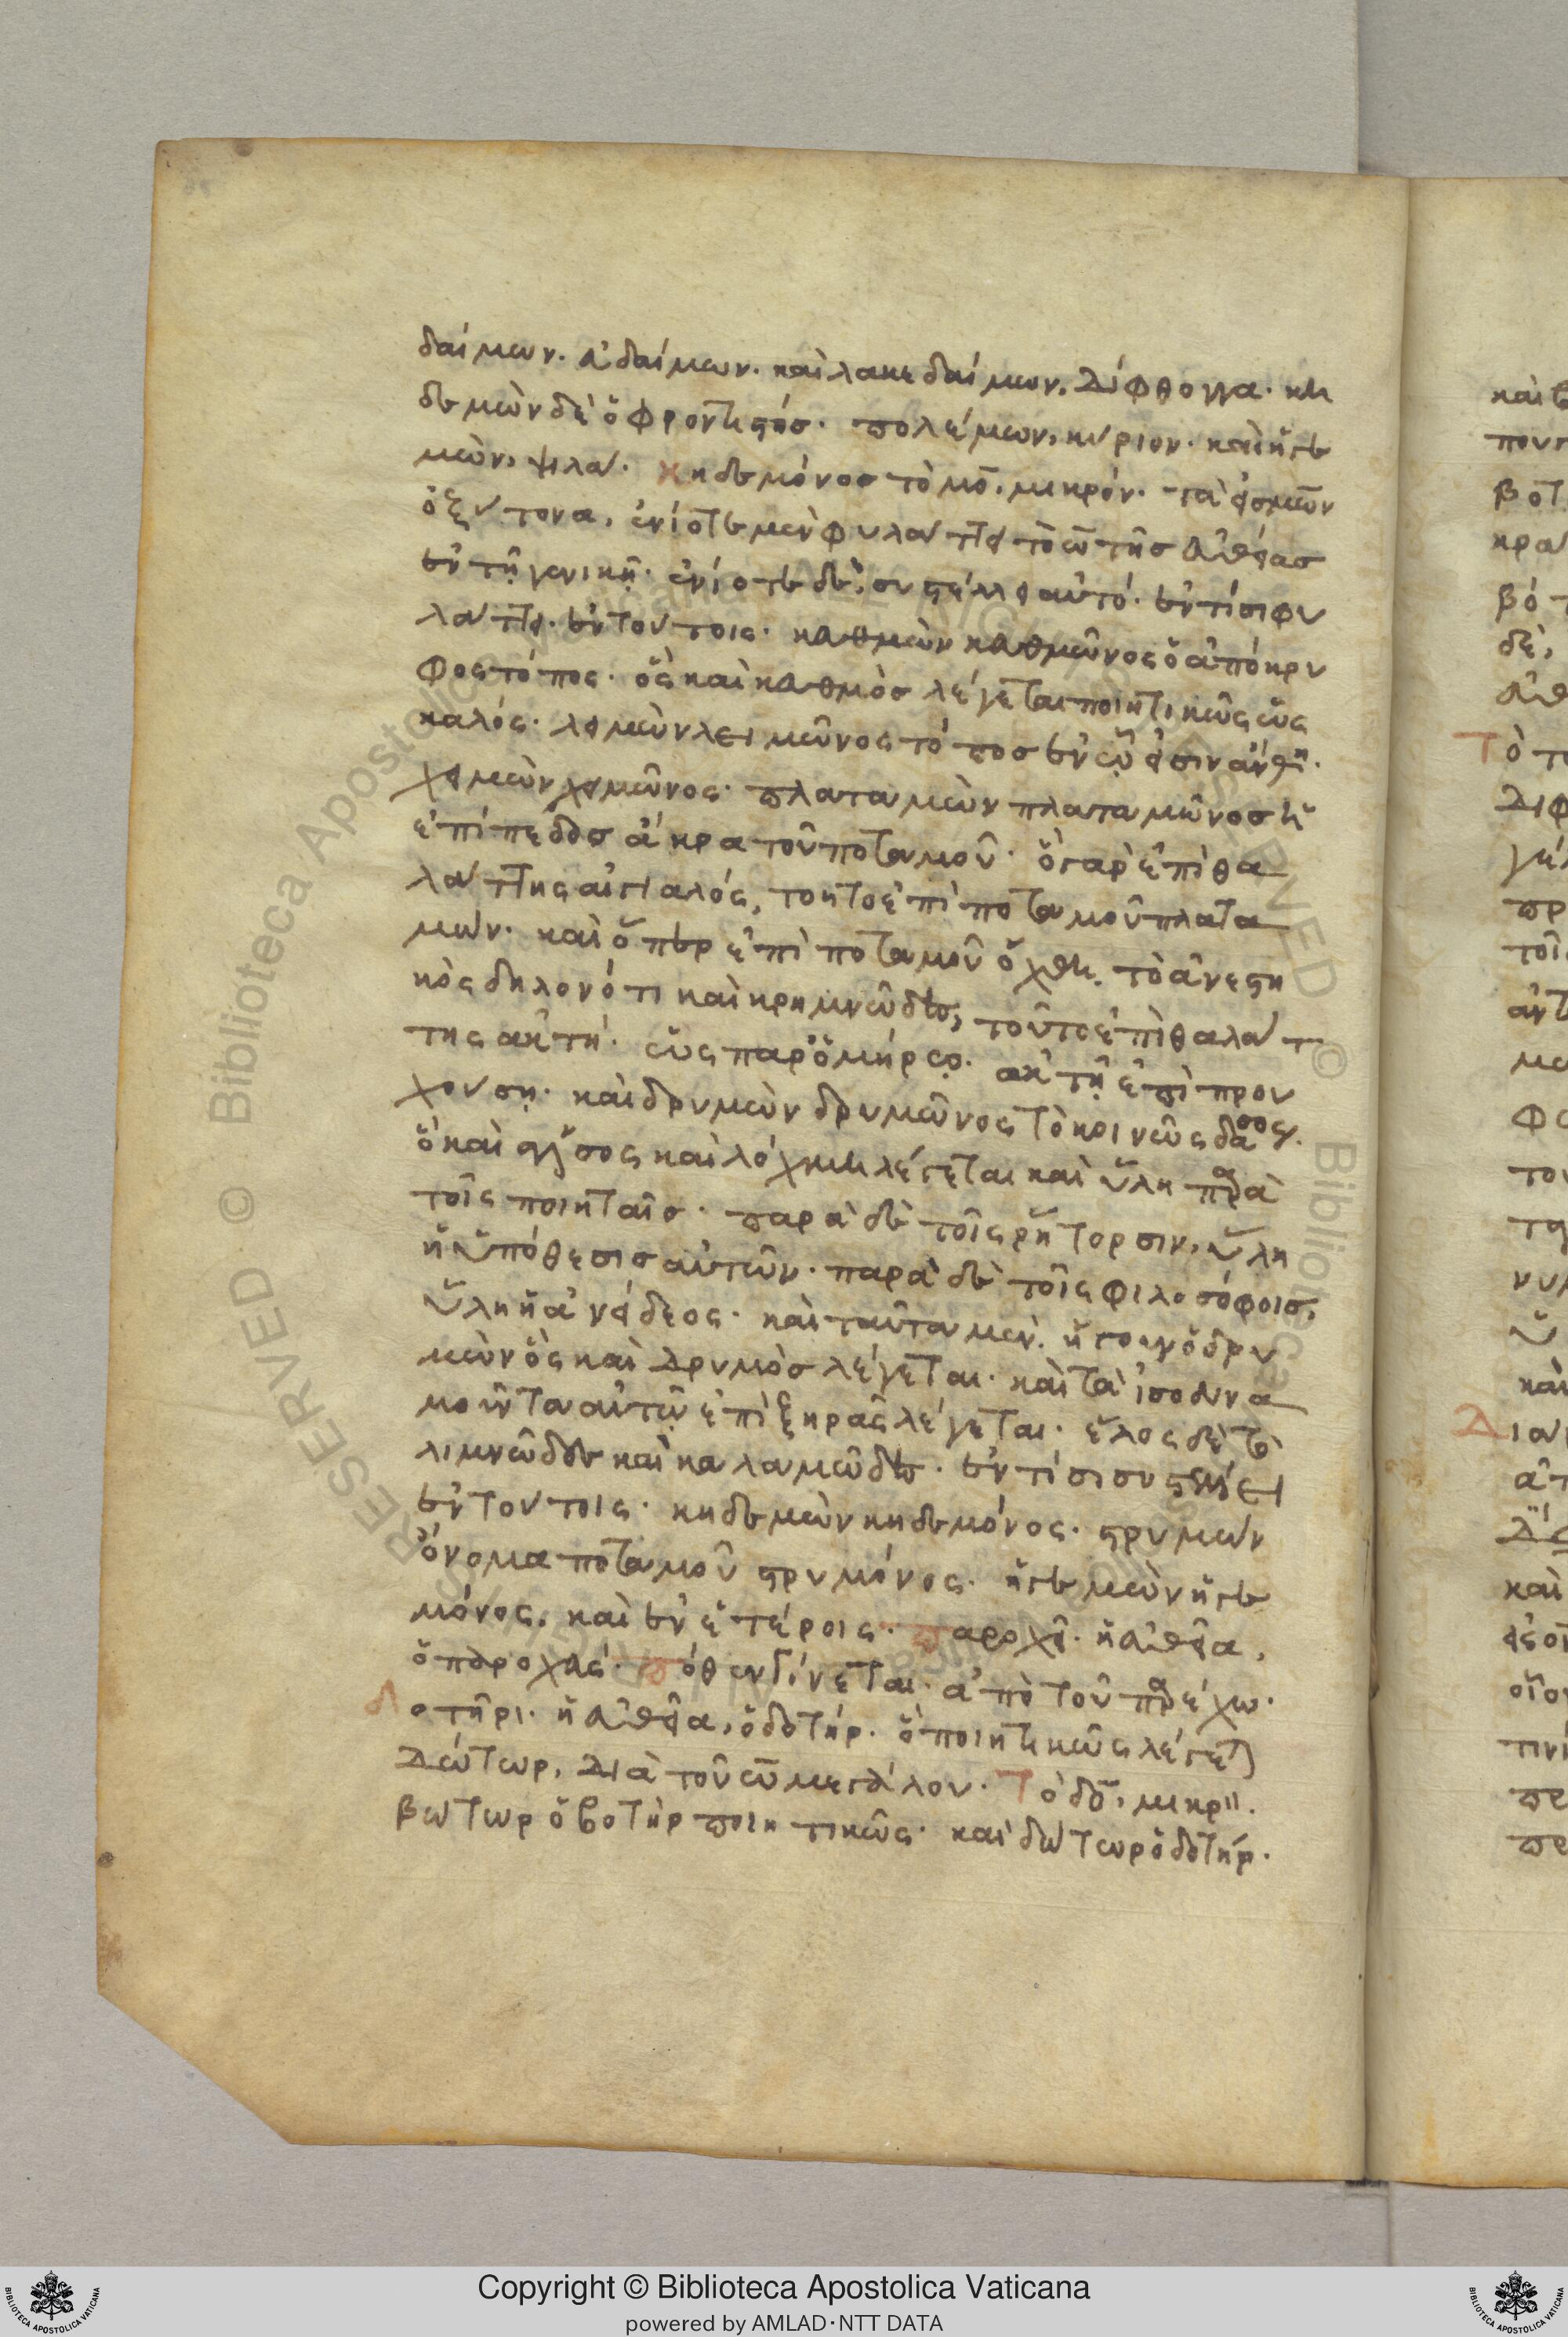 δαίμων. αἰδαίμων. καὶ λακεδαίμων. δίφθογγα. κη
δεμὼν δὲ ὁ φροντιστής. πολέμων, κύριον. καὶ ἡγε
μὼν, ψιλά. κηδεμόνος τὸ μο, μικρόν. τὰ εἰς μων
ὀξύτονα, ἐνίοτε μὲν φυλάττει τὸ ω τῆς εὐθείας
ἐν τῇ γενικῇ. ἐνίοτε δὲ, συστέλλει αὐτό. ἐν τίσι φυ
λάττει. ἐν τούτοις. κευθμὼν κευθμῶνος ὁ ἀπόκρυ
φος τόπος. ὃς καὶ κευθμὸς λέγεται ποιητικῶς ὡς
καλός. λειμὼν λειμῶνος τόπος ἐν ᾧ εἰσιν ἄνθη.
χειμὼν χειμῶνος. πλαταμὼν πλαταμῶνος ἡ
ἐπίπεδος ἄκρα τοῦ ποταμοῦ. ὃ γὰρ ἐπὶ θα
λάττης αἰγιαλός, τοῦτο ἐπὶ ποταμοῦ πλατα
μών. καὶ ὅπερ ἐπὶ ποταμοῦ ὄχθη. τὸ ἀνεστη
κὸς δηλονότι καὶ κρημνῶδες, τοῦτο ἐπὶ θαλάτ
της ἀκτή. ὡς παρ' ὁμήρῳ. ἀκτῇ ἐπὶ πρου
χούσῃ. καὶ δρυμὼν δρυμῶνος τὸ κοινῶς δάσος.
ὃ καὶ ἄλσος καὶ λόχμη λέγεται καὶ ὕλη παρὰ
τοῖς ποιηταῖς. παρὰ δὲ τοῖς ῥήτορσιν, ὕλη
ἡ ὑπόθεσις αὐτῶν. παρὰ δὲ τοῖς φιλοσόφοις,
ὕλη ἡ ἀνείδεος. καὶ ταῦτα μὲν. ἤγουν ὁ δρυ
μὼν ὃς καὶ δρυμὸς λέγεται. καὶ τὰ ἰσοδυνα
μοῦντα αὐτῷ ἐπὶ ξηρᾶς λέγεται. ἕλος δὲ τὸ
λιμνῶδες καὶ καλαμῶδες. ἐν τίσι συστέλλει
ἐν τούτοις. κηδεμὼν κηδεμόνος. στρυμὼν
ὄνομα ποταμοῦ στρυμόνος. ἡγεμὼν ἡγε
μόνος. καὶ ἐν ἑτέροις. παροχεῖ. ἡ εὐθεῖα,
ὁ παροχεύς. πόθεν γίνεται. ἀπὸ τοῦ παρέχω.
δοτῆρι. ἡ εὐθεῖα, ὁ δοτήρ. ὁ ποιητικῶς λέγεται
δώτωρ, διὰ τοῦ ω μεγάλου. τὸ δο, μικρὸν.
βώτωρ ὁ βοτὴρ ποιητικῶς. καὶ δώτωρ ὁ δοτήρ.
Copyright © Biblioteca Apostolica Vaticana
powered by AMLAD·NTT DATA